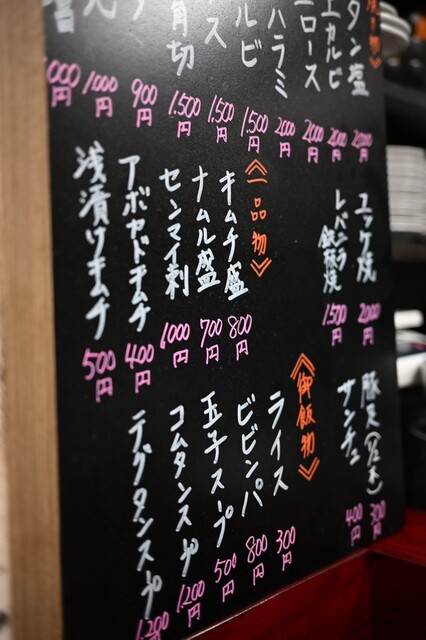 物》
タン塩 2000円
上カルビ 2000円
ロース 2000円
ハラミ 2000円
ルビ 1,500円
ス 1,500円
角切 1,500円
900円
1000円
000円
ユッケ焼 2000円
レバニラ鉄板焼 1,500円
《一品物》
キムチ盛 800円
ナムル盛 700円
センマイ刺 1000円
アボカドキムチ 400円
浅漬けキムチ 500円
豚足(1/2本) 300円
サンチュ 400円
《御飯物》
ライス 300円
ビビンパ 800円
玉子スープ 500円
コムタンスープ 1,200円
テグタンスープ 1,200